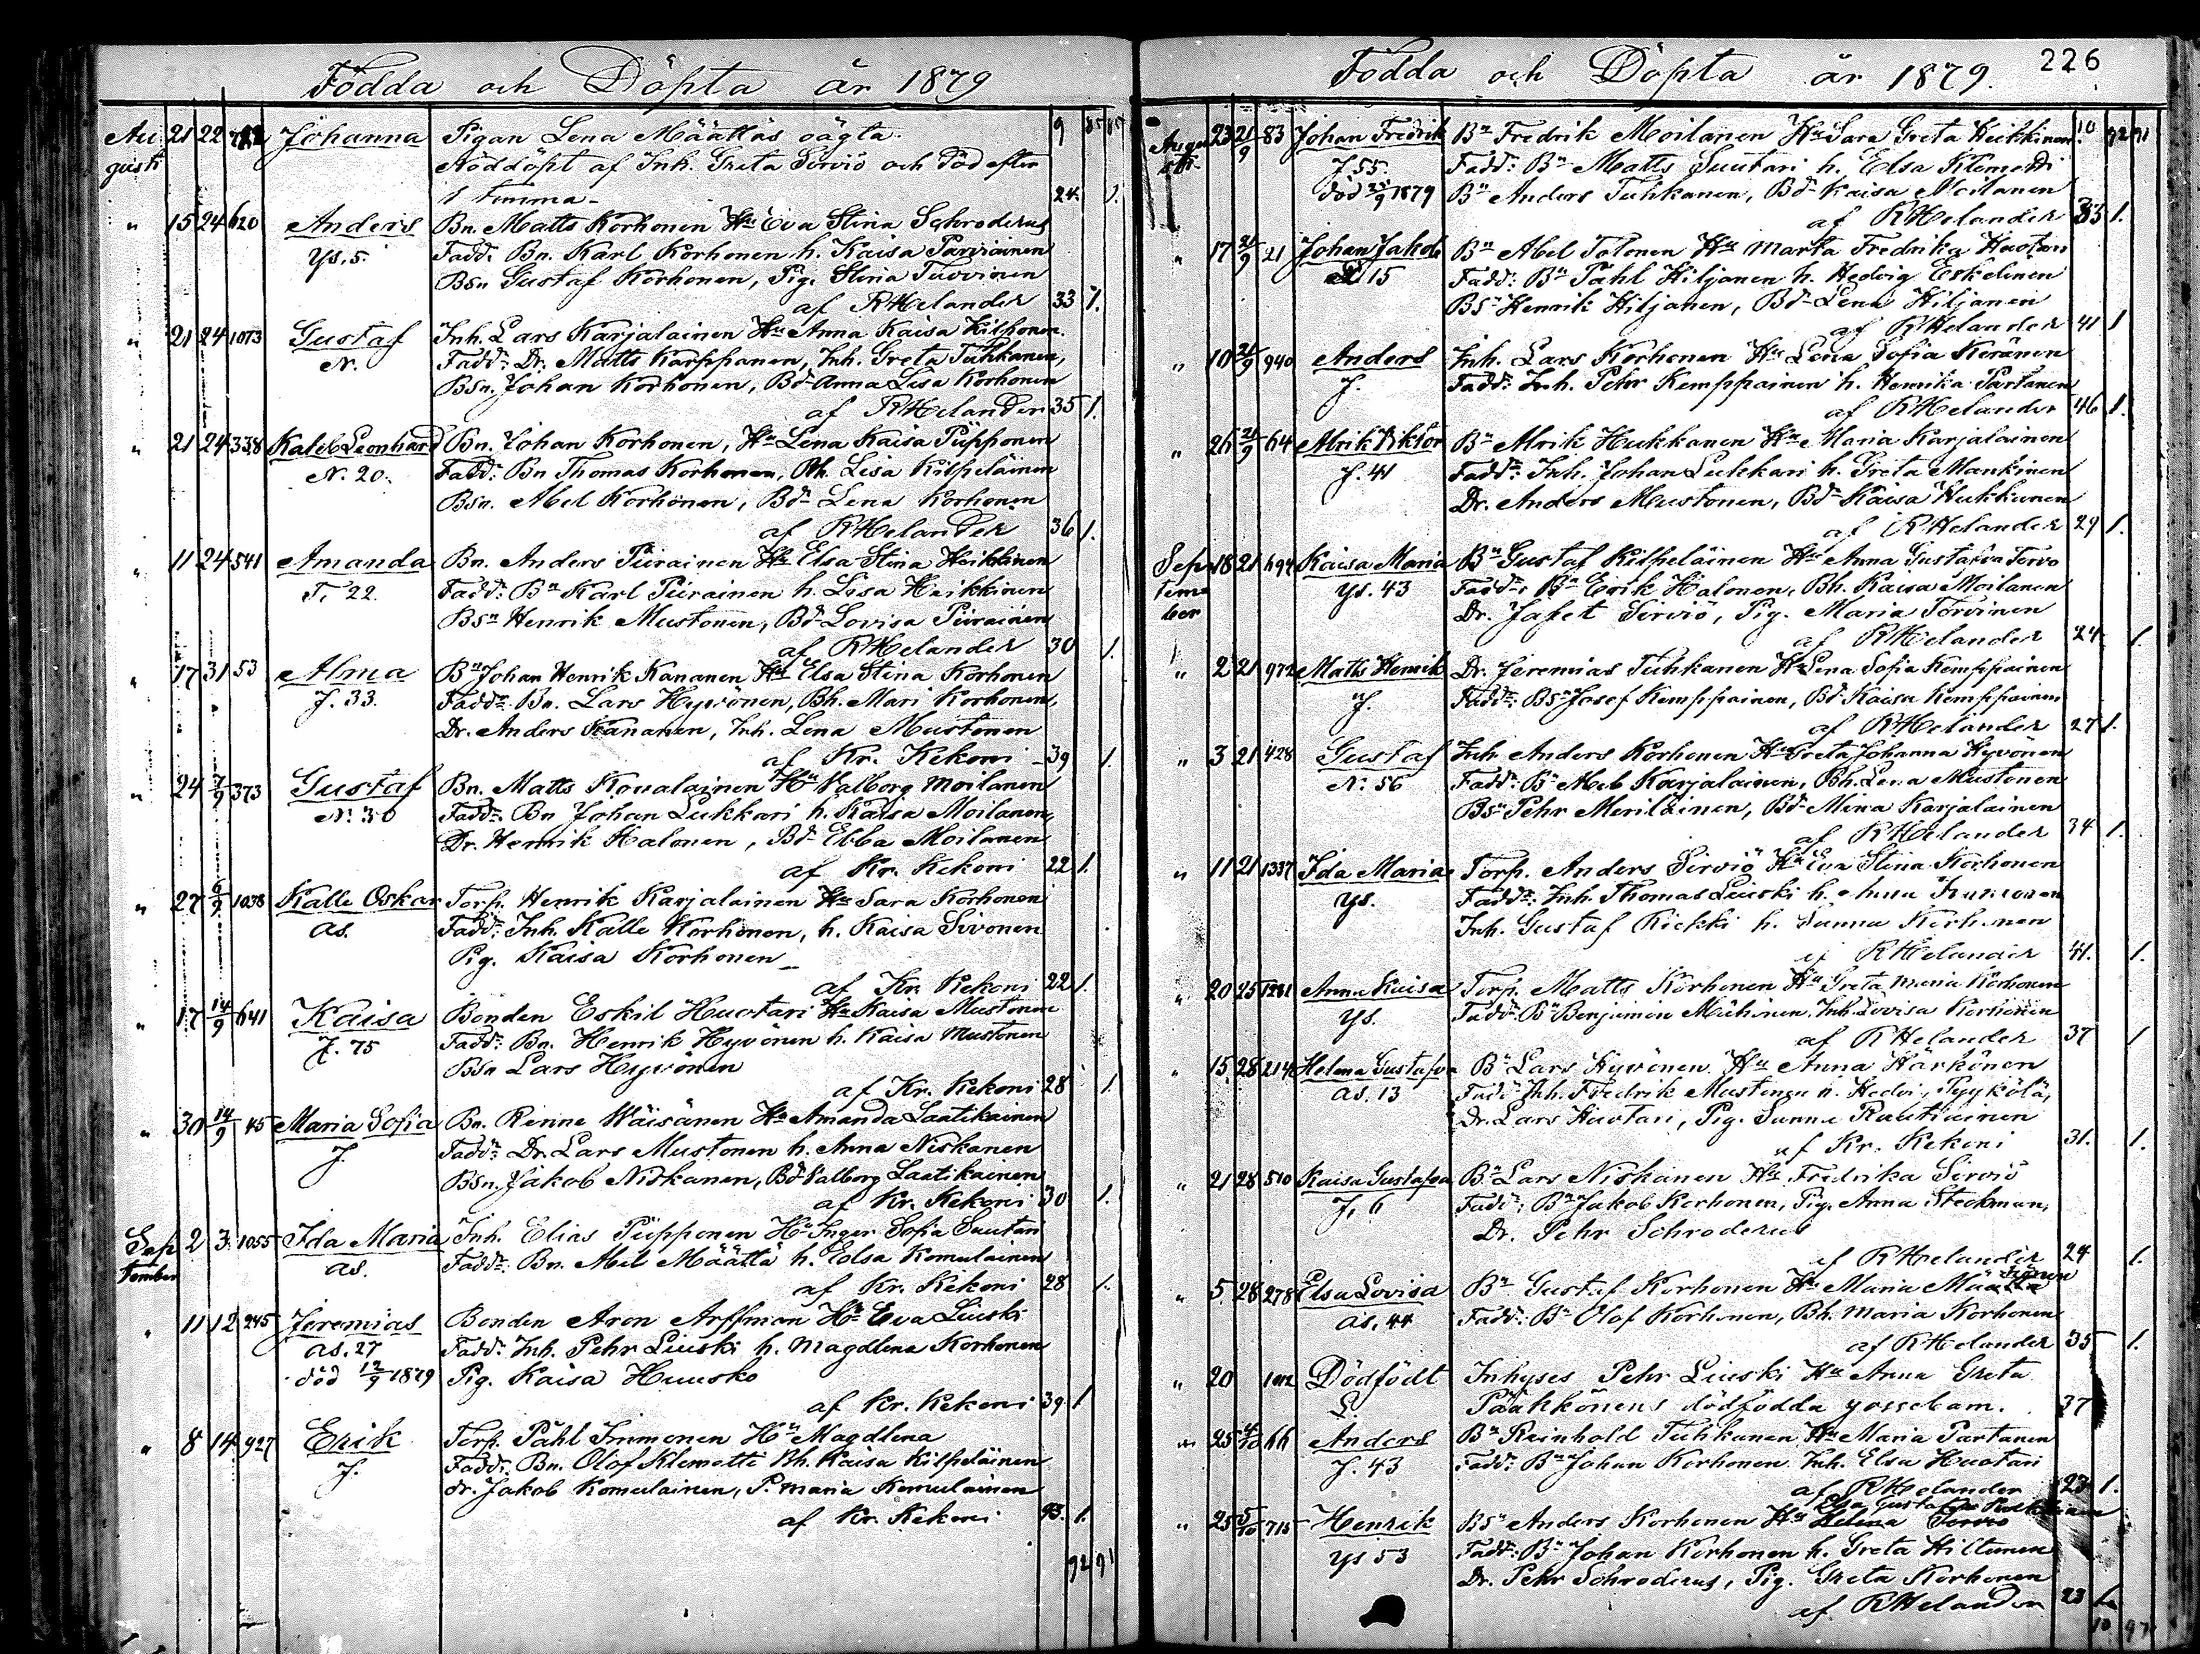 Födda och Döpta år 1879
Au 21 22 Johanna Pigan Lena Määttäs oägta
gusti Nöddöpt af Inh. Greta Sirviö och död efter
1 timma 24. 1.
" 15 24 620 Anders Bn. Matts Korhonen Hu Eva Stina Schroderus
Ys. 5. Fadd: Bn. Karl Korhonen h. Kaisa Parviainen
Bsn Gustaf Korhonen, Pig. Stina Tuovinen
af RHelander 33 1.
" 21 24 1073 Gustaf Inh. Lars Karjalainen Hu Anna Kaisa Kilponen
N. Fadd: Dr. Matts Karppanen, Inh. Greta Tuhkanen,
Bsn. Johan Korhonen, Bd Anna Lisa Korhonen
af RHelander 35 1.
" 21 24 338 Kaleb Leonhard Bn. Johan Korhonen, Hu Lena Kaisa Piipponen
N. 20. Fadd: Bn Thomas Korhonen, Bh. Lisa Kilpeläinen
Bsn. Abel Korhonen, Bd Lena Korhonen
af RHelander 36 1.
" 11 24 541 Amanda Bn. Anders Piirainen Hu Elsa Stina Heikkinen
T. 22. Fadd: Bn Karl Piirainen h. Lisa Heikkinen
Bsn Henrik Mustonen, Bd Lovisa Piirainen
af RHelander 30 1.
" 17 31 53 Alma Bn Johan Henrik Kananen Hu Elsa Stina Korhonen
J. 33. Fadd: Bn. Lars Hyvönen, Bh. Mari Korhonen,
Dr. Anders Kananen, Inh. Lena Mustonen
af Kr. Kekoni 39 1.
" 24 7/9 373 Gustaf Bn. Matts Kovalainen Hu Valborg Moilanen
N. 30 Fadd: Bn Johan Lukkari h. Kaisa Moilanen,
Dr. Henrik Halonen, Bd Ebba Moilanen
af Kr. Kekoni 22 1.
" 27 6/9 1038 Kalle Oskar Torp. Henrik Karjalainen Hu Sara Korhonen
As. Fadd: Inh. Kalle Korhonen, h. Kaisa Sivonen
Pig. Kaisa Korhonen
af Kr. Kekoni 22 1.
" 17 14/9 641 Kaisa Bonden Eskil Huotari Hu Kaisa Mustonen
J. 75 Fadd: Bn. Henrik Hyvönen h. Kaisa Mustonen
Bsn Lars Hyvönen
af Kr. Kekoni 28 1.
" 30 14/9 45 Maria Sofia Bn. Renne Wäisänen Hu Amanda Laatikainen
J. Fadd: Dr. Lars Mustonen h. Anna Niskanen
Bsn. Jakob Niskanen, Bd Valborg Laatikainen
af Kr. Kekoni 30 1.
Sep 2 3 1055 Ida Maria Inh. Elias Piipponen Hu Inger Sofia Suutari
tember As. Fadd: Bn. Abel Määttä h. Elsa Komulainen
af Kr. Kekoni 28 1.
" 11 12 245 Jeremias Bonden Aron Arffman Hu Eva Liuski
As. 27 Fadd: Inh. Pehr Liuski h. Magdlena Korhonen
död 12/9 1879 Pig. Kaisa Huusko
af Kr. Kekoni 39 1
" 8 14 927 Erik Torp. Påhl Immonen Hu Magdlena
J. Fadd: Bn. Olof Klemetti Bh. Kaisa Kilpeläinen
dr. Jakob Komulainen, P. Maria Komulainen
af Kr. Kekoni 43. 1.
92 91
Födda och Döpta år 1879. 226
Augu 23 21/9 83 Johan Fredrik Bn Fredrik Moilanen Hu Sara Greta Heikkinen
sti. J. 55. Fadd: Bn Matts Suutari h. Elsa Klemetti
Bn Anders Tuhkanen, Bd Kaisa Moilanen
af RHelander 33 1.
" 17 21/9 21 Johan Jakob Bn Abel Tolonen Hu Marta Fredrika Huotari
15 Fadd: Bn Påhl Hiljanen h. Hedvig Eskelinen
Bsn Henrik Hiljanen, Bd Lena Hiljanen
af RHelander 41 1
" 10 21/9 940 Anders Inh. Lars Korhonen Hu Lena Sofia Keränen
J. Fadd: Inh. Pehr Kemppainen h. Henrika Partanen
af RHelander 46 1.
" 26 21/9 64 Alrik Viktor Bn Alrik Hukkanen Hu Maria Karjalainen
J. 41 Fadd: Inh. Johan Lukkari h. Greta Mankinen
Dr. Anders Mustonen, Bd Kaisa Hukkanen
af RHelander 29 1.
Sep 18 21 694 Kaisa Maria Bn Gustaf Kilpeläinen Hu Anna Gustafva Torvo
tem Ys. 43 Fadd: Bn Erik Halonen, Bh. Kaisa Moilanen
ber Dr. Jafet Sirviö, Pig. Maria Torvinen
af RHelander 24 1.
" 2 21 972 Matts Henrik Dr. Jeremias Tuhkanen Hu Lena Sofia Kemppainen
J. Fadd: Bsn Josef Kemppainen, Bd Kaisa Kemppainen
af RHelander 27 1.
" 3 21 428 Gustaf Inh Anders Korhonen Hu Greta Johanna Hyvönen
N. 56 Fadd: Bn Abel Karjalainen, Bh. Lena Mustonen
Bsn Pehr Meriläinen, Bd Mina Karjalainen
af RHelander 34 1.
" 11 21 1337 Ida Maria Torp. Anders Sirviö Hu Eva Stina Korhonen
Ys. Fadd: Inh. Thomas Liuski h. Anna
Inh. Gustaf Kickki h. Sanna Korhonen
af RHelander 41. 1.
" 20 25 1281 Anna Kaisa Torp. Matts Korhonen Hu Greta Maria Korhonen
Ys. Fadd: Bn Benjamin Inh. Lovisa Korhonen
af RHelander 37 1
" 15 28 214 Helena Gustafva Bn Lars Hyvönen Hu Anna Härkönen
As. 13 Fadd: Inh. Fredrik Mustonen h. Hedvi. Pyykölä,
Dr. Lars Huotari, Pig. Sanna Rautiainen
af Kr. Kekoni 31. 1.
" 21 28 510 Kaisa Gustafva Bn Lars Niskanen Hu Fredrika Sirviö
J. 6 Fadd: Bn Jakob Korhonen, Pig. Anna Steckman,
Dr. Pehr Schroderus
af RHelander 24 1.
" 5 28 278 Elsa Lovisa Bn Gustaf Korhonen Hu Maria
As. 44 Fadd: Bn Olof Korhonen, Bh. Maria Korhonen
af RHelander 35 1.
" 20 Dödfödt Inhyses Pehr Liuski Hu Anna Greta
Pääkkönens dödfödda gossebarn. 37
" 25 66 Anders Bn Rainhold Tuhkanen Hu Maria Partanen
J. 43 Fadd: Bn Johan Korhonen Inh. Elsa Huotari
af RHelander 23 1.
" 25 5/10 715 Henrik Bsn Anders Korhonen Hu Helena
Ys 53 Fadd: Bn Johan Korhonen h. Greta Hiltunen
Dr. Pehr Schroderus, Pig. Greta Korhonen
af RHelander 23